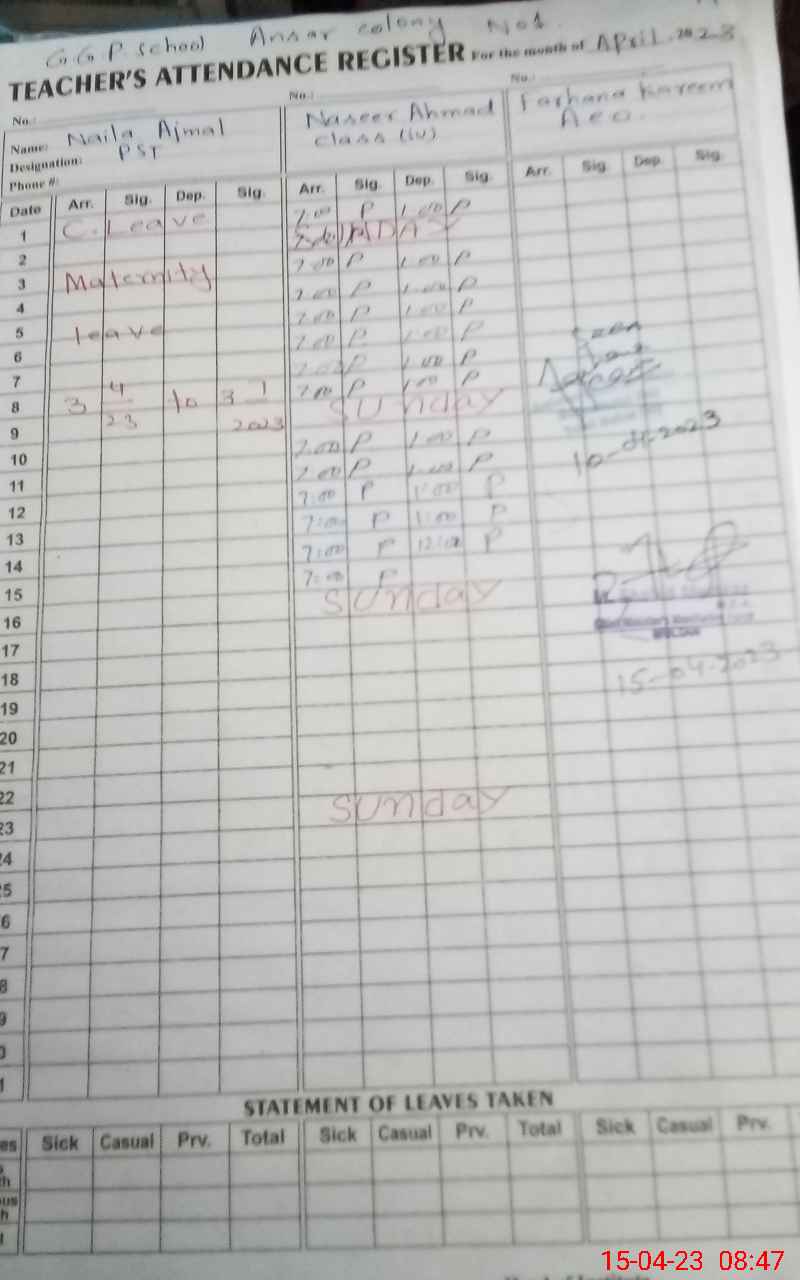 G G P school Ansar colony No1.
TEACHER'S ATTENDANCE REGISTER For the month of April. 2023
No.: No.: No.:
Name: Naila Ajmal Naseer Ahmad Farhana Kareem
Designation: PST Class (iv) AEO.
Phone #:
Date Arr. Sig. Dep. Sig. Arr. Sig. Dep. Sig. Arr. Sig. Dep. Sig.
1 C. Leave 7:00 P 1:00 P
2 SUNDAY
3 Maternity 7:00 P 1:00 P
4 7:00 P 1:00 P
5 leave 7:00 P 1:00 P
6 7:00 P 1:00 P
7 7:00 P 1:00 P
8 3 4 23 to 3 1 2023 7:00 P 1:00 P
9 Sunday
10 7:00 P 1:00 P 10-04-2023
11 7:00 P 1:00 P
12 7:00 P 1:00 P
13 7:00 P 1:00 P
14 7:00 P 12:00 P
15 7:00 P
16 Sunday
17
18 15-04-2023
19
20
21
22
23 Sunday
4
5
6
7
8
9
0
1
STATEMENT OF LEAVES TAKEN
es Sick Casual Prv. Total Sick Casual Prv. Total Sick Casual Prv.
h
ous
h
15-04-23 08:47